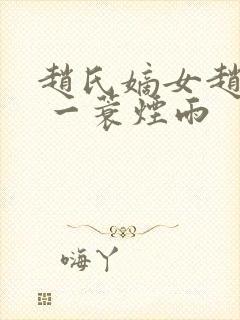 趙氏嫡女趙
一蓑煙雨
嗨丫